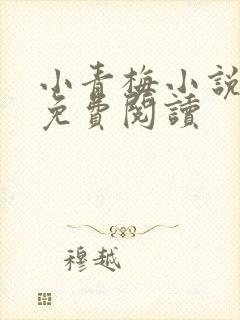 小青梅小說
免費閱讀
穆越